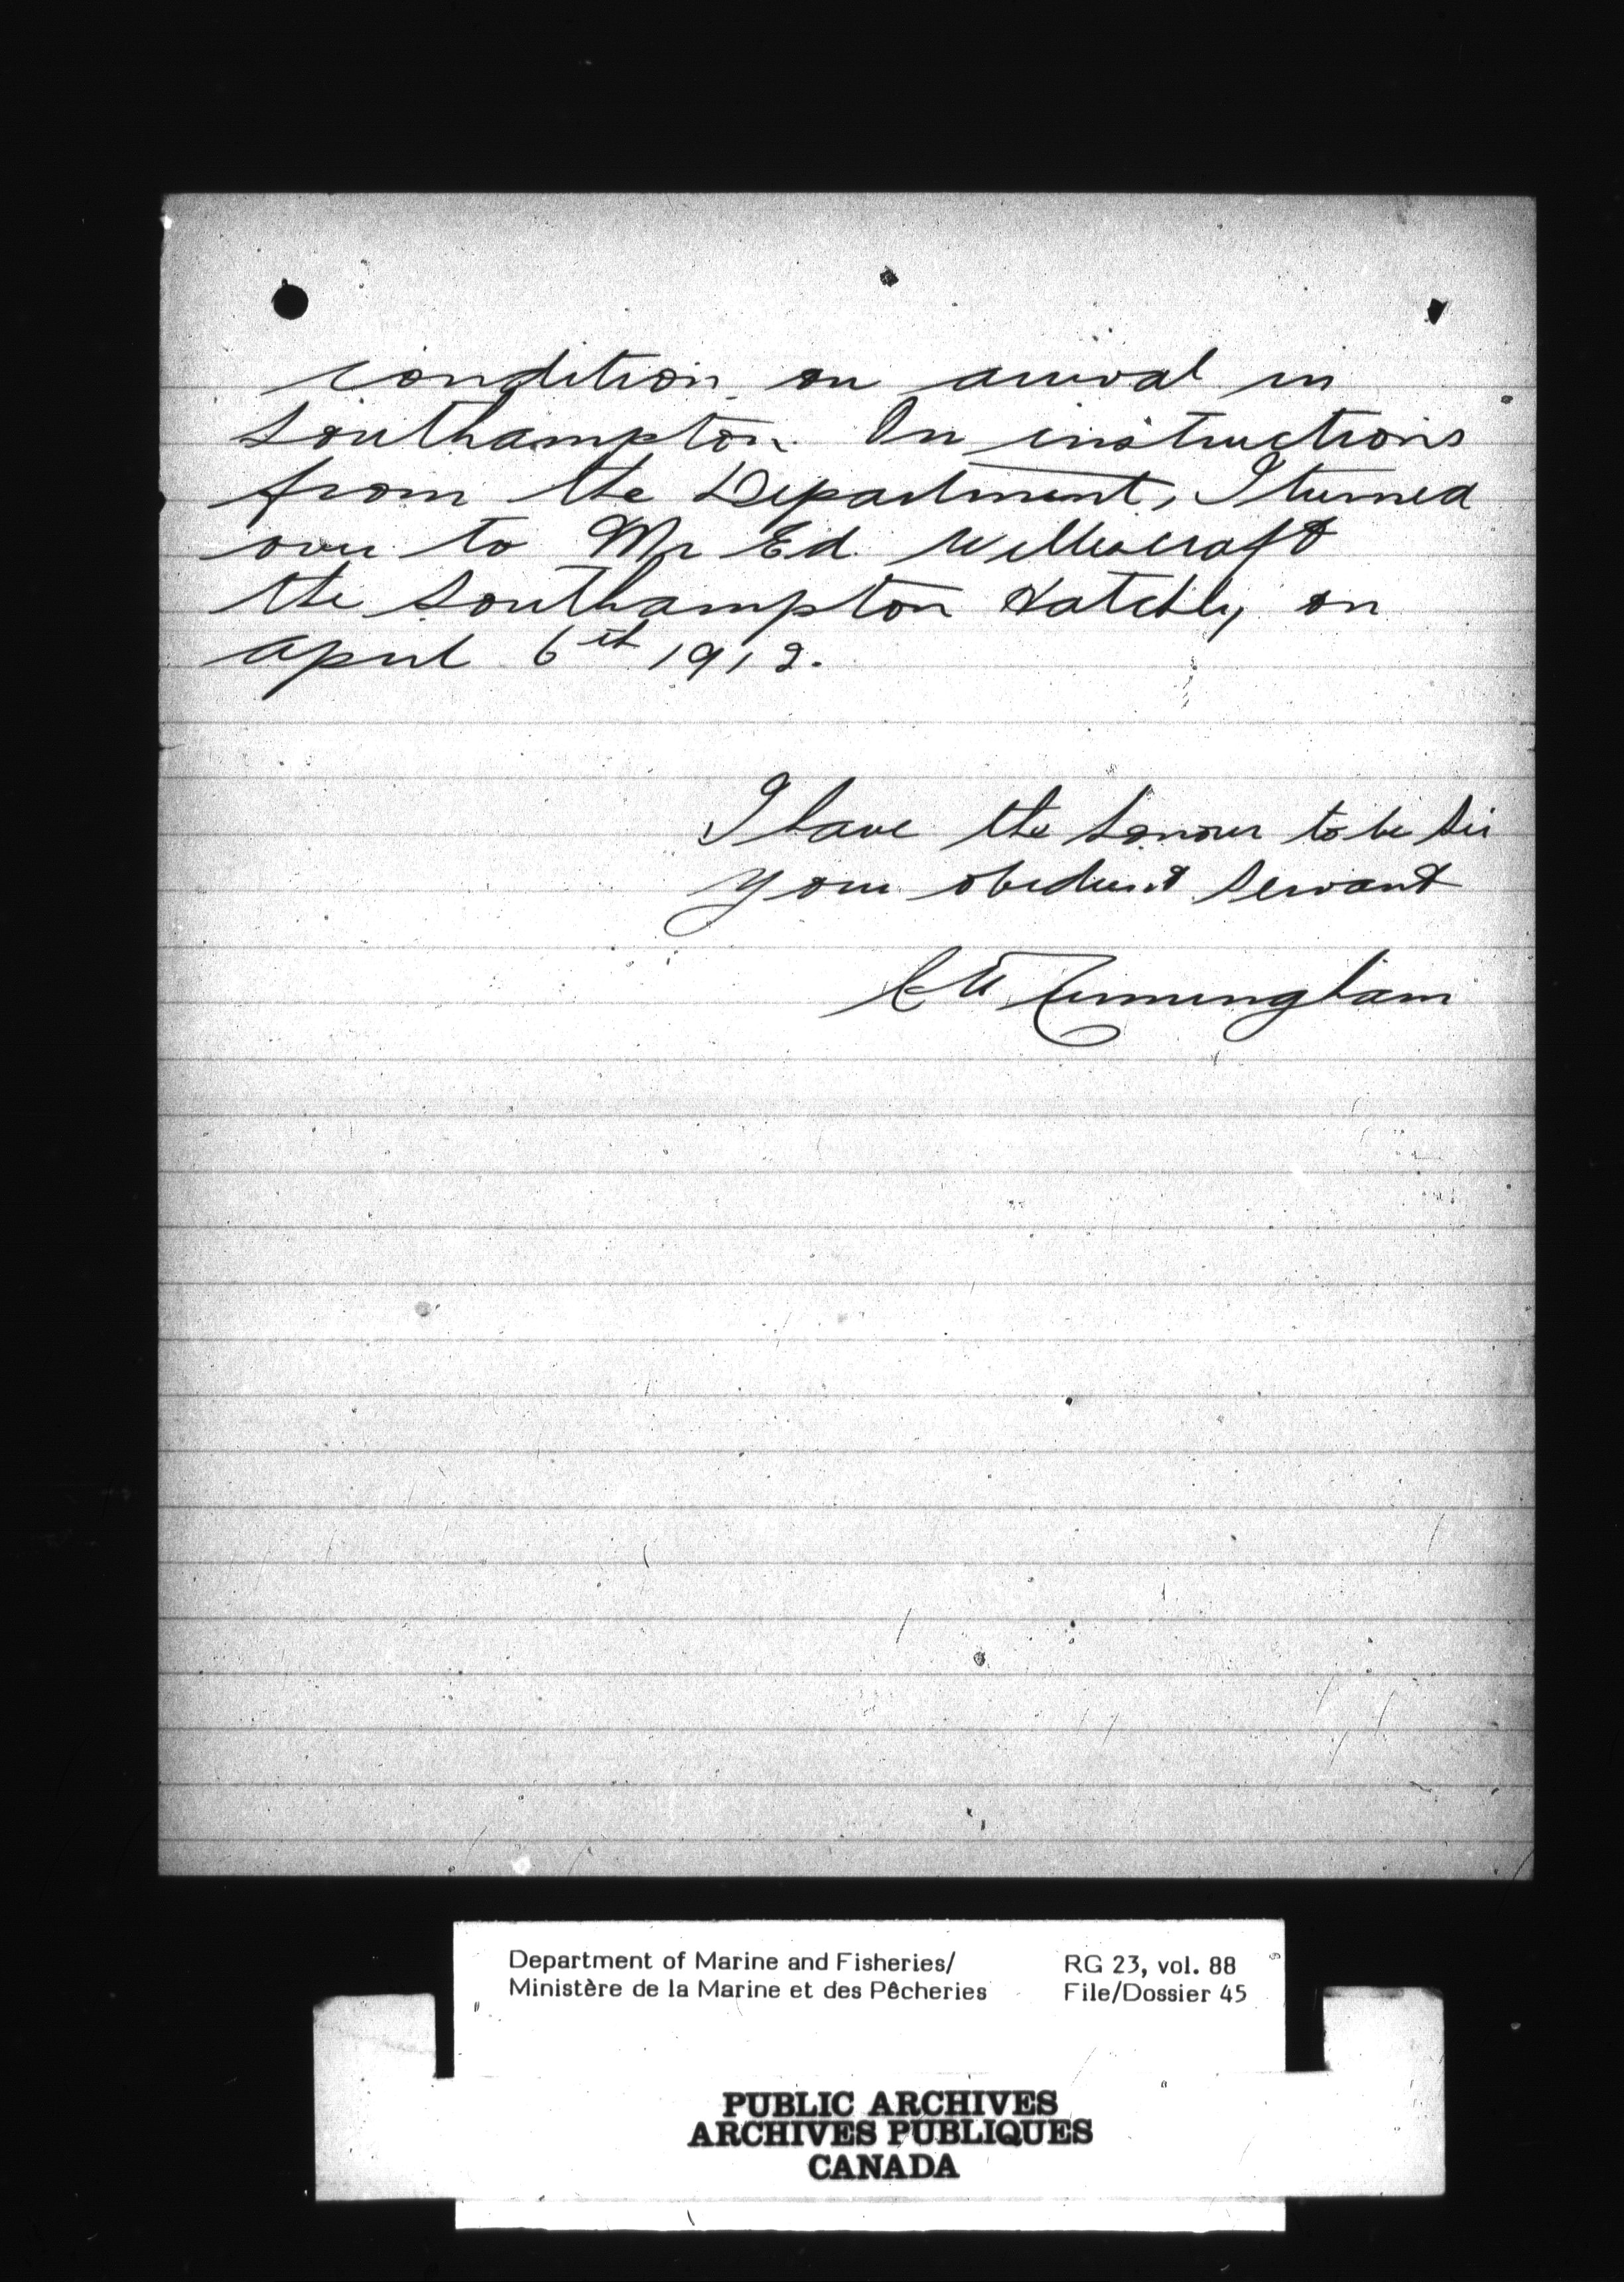 condition on arrival in
Southampton. On instructions
from the Department, I turned
over to Mr Ed
the Southampton Hatchy on
April 6th 1912.
I have the honour to be Sir
Your obedient servant
Cunningham
Department of Marine and Fisheries/ RG 23, vol. 88
Ministère de la Marine et des Pêcheries File/Dossier 45
PUBLIC ARCHIVES
ARCHIVES PUBLIQUES
CANADA